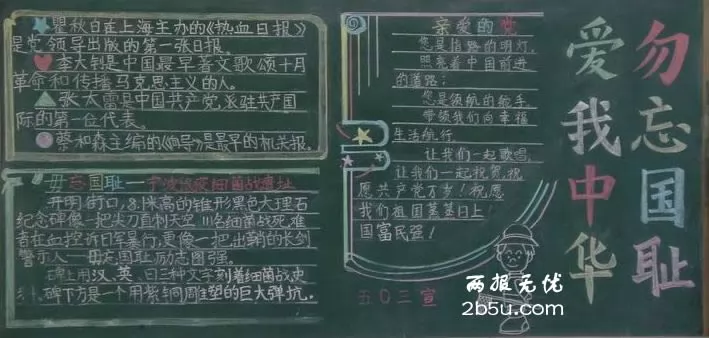 瞿秋白在上海主办的《热血日报》
是党领导出版的第一张日报。
李大钊是中国最早著文歌颂十月
革命和传播马克思主义的人。
张太雷是中国共产党,派驻共产国
际的第一位代表。
蔡和森主编的《向导》是最早的机关报。
毋忘国耻一宁波长疫细菌战遗址
开明街口,8.1米高的锥形黑色大理石
纪念碑像一把尖刀直刺天空,111名细菌战死难
者在血控诉日军暴行,更像一把出鞘的长剑
警示人——毋忘国耻励志图强。
碑上用汉、英、日三种文字刻着细菌战史
碑下方是一个用紫铜雕塑的巨大弹坑。
亲爱的党
您是指路的明灯,
照亮着中国前进
的道路;
您是领航的舵手,
带领我们向幸福
生活航行。
让我们一起歌唱,
让我们一起祝贺,祝
愿共产党万岁!祝愿
我们祖国蒸蒸日上!
国富民强!
五〇三宣
勿忘国耻
爱我中华
两报无优
2b5u.com